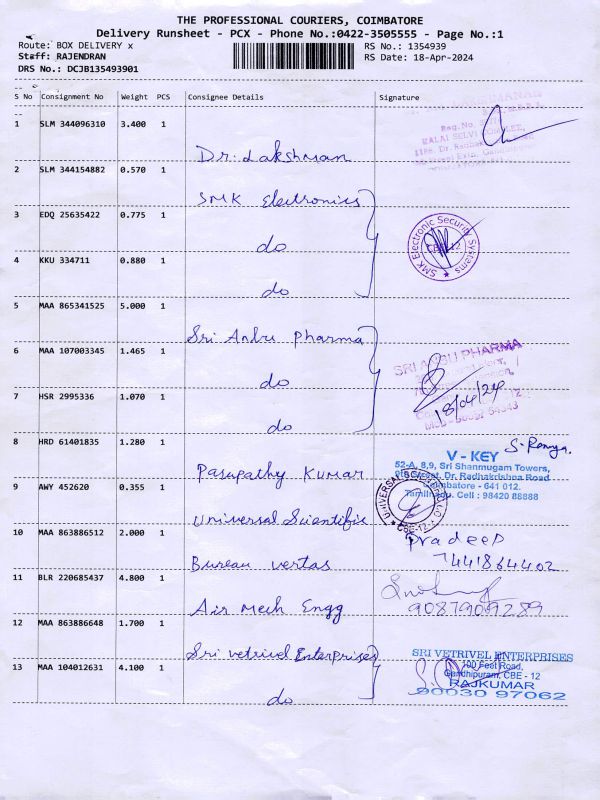 THE PROFESSIONAL COURIERS, COIMBATORE
Delivery Runsheet - PCX - Phone No.:0422-3505555 - Page No.:1
Route: BOX DELIVERY x
RS No.: 1354939
Staff: RAJENDRAN
RS Date: 18-Apr-2024
DRS No.: DCJB135493901
S No Consignment No Weight PCS Consignee Details Signature
1 SLM 344096310 3.400 1
Dr. Lakshman
Reg. No.
KALAI SELVI COMPLEX,
2 SLM 344154882 0.570 1
SMK Electronics
3 EDQ 25635422 0.775 1
do
SMK Electronic Security Systems
CBE-12
4 KKU 334711 0.880 1
do
5 MAA 865341525 5.000 1
Sri Anbu Pharma
SRI ANBU PHARMA
6 MAA 107003345 1.465 1
do
18/04/24
7 HSR 2995336 1.070 1
do
8 HRD 61401835 1.280 1
Pasupathy Kumar
S. Ramya.
V - KEY
52-A, 8,9, Sri Shanmugam Towers,
Street, Dr. Radhakrishna Road
Coimbatore - 641 012.
Tamilnadu. Cell : 98420 88888
9 AWY 452620 0.355 1
Universal Scientific
UNIVERSAL
CBE-12
10 MAA 863886512 2.000 1
Bureau vertas
Pradeep
7441864402
11 BLR 220685437 4.800 1
Air Mech Engg
9087909289
12 MAA 863886648 1.700 1
Sri vetrivel Enterprises
SRI VETRIVEL ENTERPRISES
100 Feet Road,
Gandhipuram, CBE - 12
RAJKUMAR
90030 97062
13 MAA 104012631 4.100 1
do